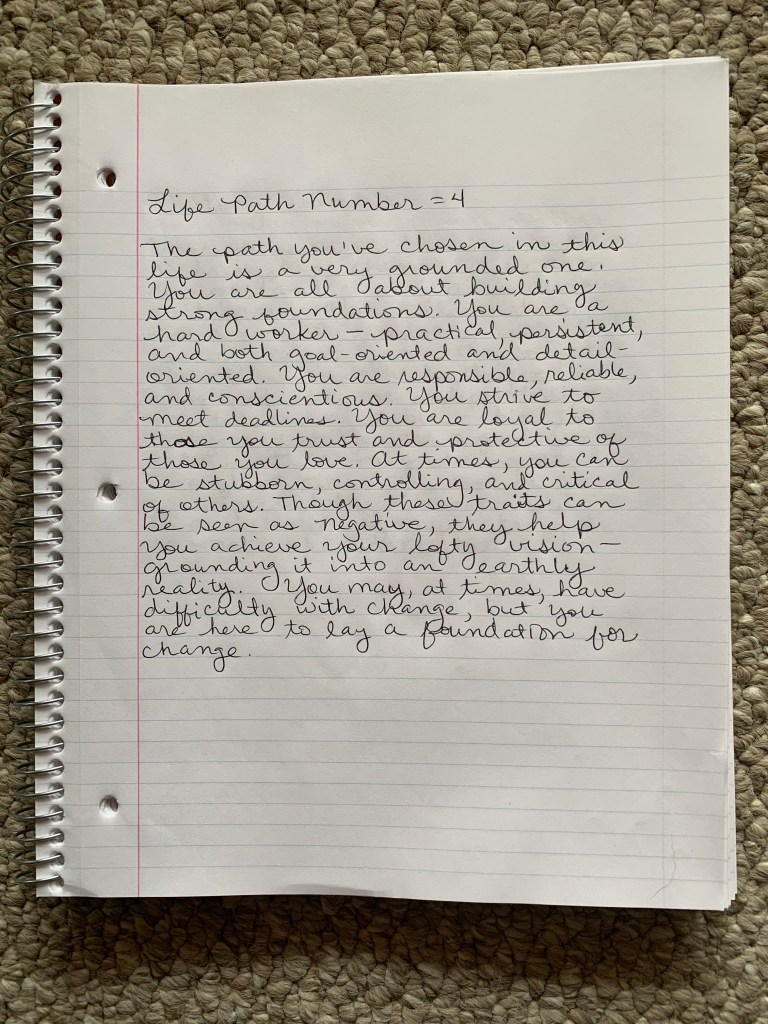 Life Path Number = 4
The path you've chosen in this
life is a very grounded one.
You are all about building
strong foundations. You are a
hard worker – practical, persistent,
and both goal-oriented and detail-
oriented. You are responsible, reliable,
and conscientious. You strive to
meet deadlines. You are loyal to
those you trust and protective of
those you love. At times, you can
be stubborn, controlling, and critical
of others. Though these traits can
be seen as negative, they help
you achieve your lofty vision –
grounding it into an earthly
reality. You may, at times, have
difficulty with change, but you
are here to lay a foundation for
change.